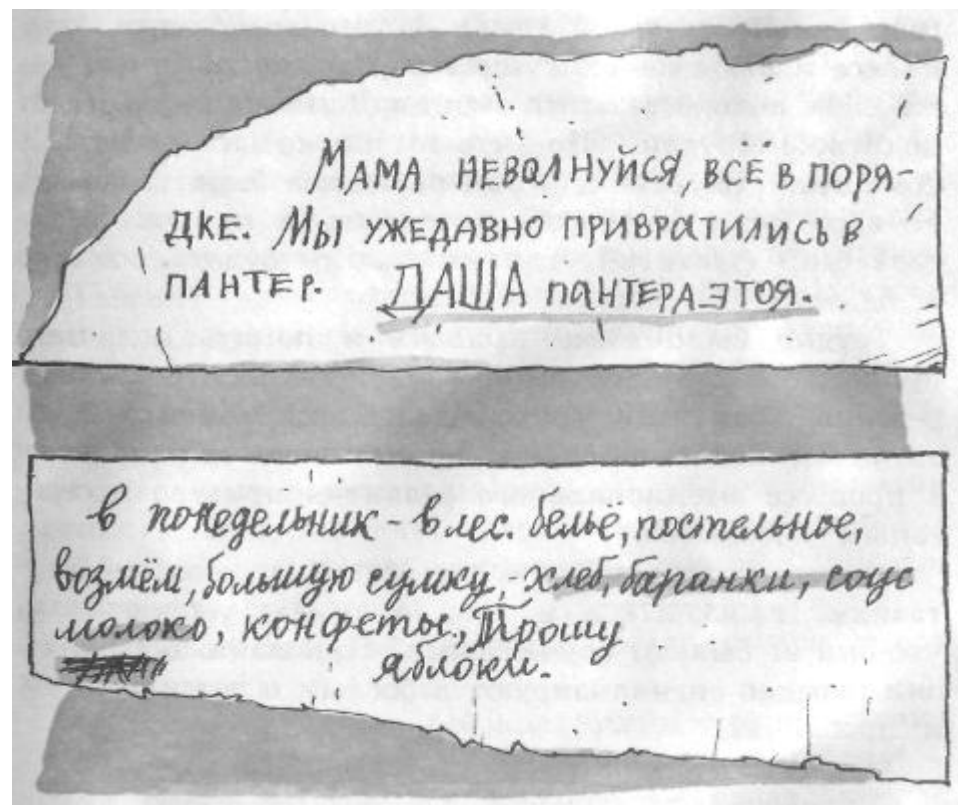 МАМА НЕВОЛНУЙСЯ, ВСЁ В ПОРЯ-
ДКЕ. МЫ УЖЕДАВНО ПРИВРАТИЛИСЬ В
ПАНТЕР. ДАША ПАНТЕРА ЭТОЯ.
в понедельник - в лес. бельё, постельное,
возмём, большую сумку, хлеб, баранки, соус
молоко, конфеты, Трошу
яблоки.